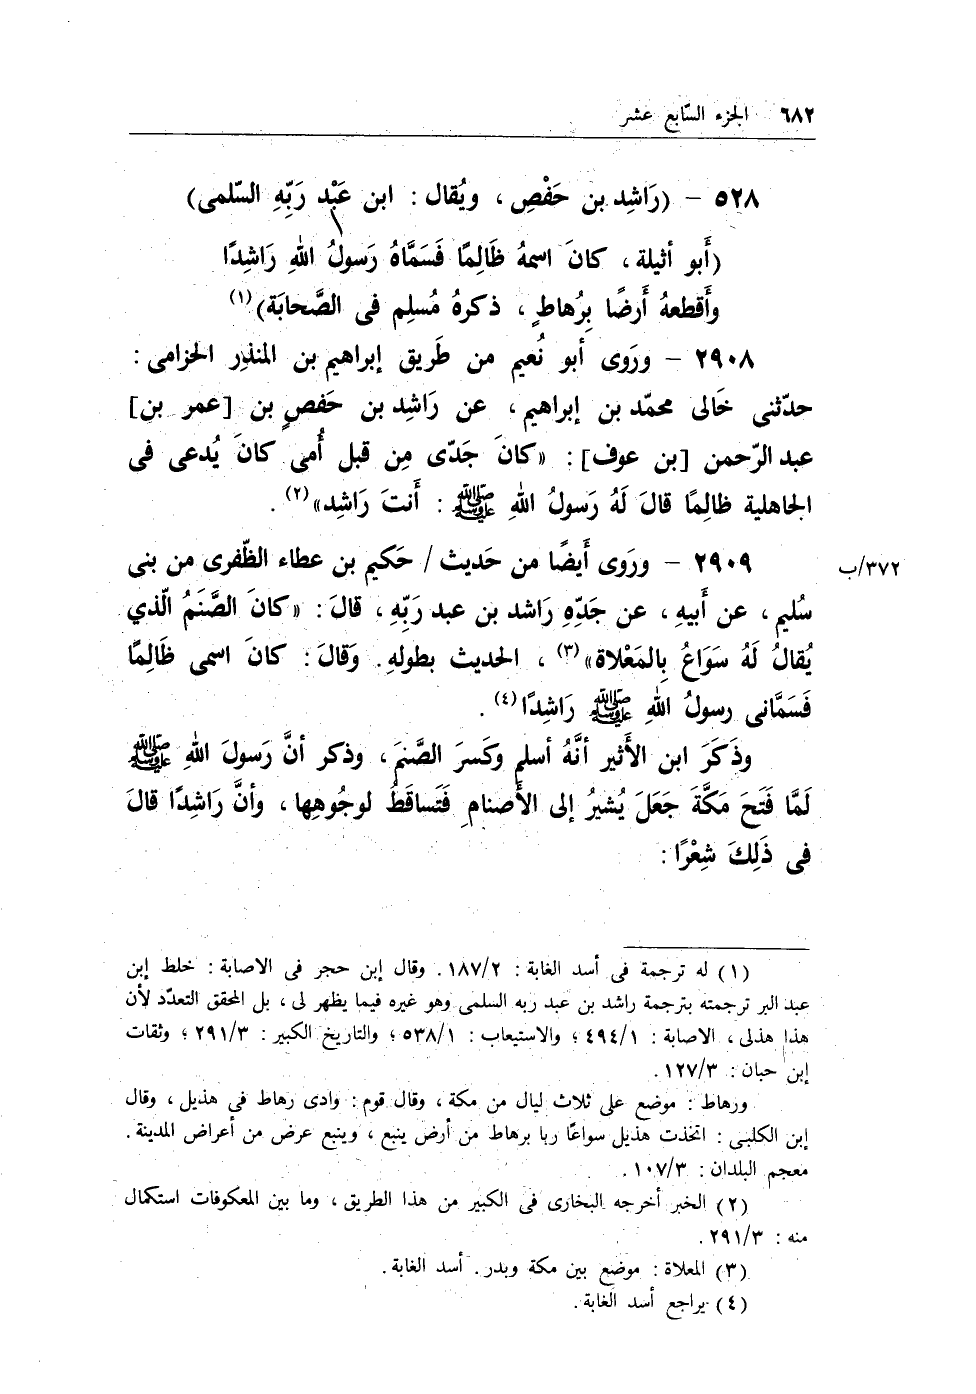 ٦٨٢ الجزء السّابع عشر
٥٢٨ – (رَاشِد بن حَفْصِ ، ويُقال : ابن عَبْد رَبِّهِ السّلمى)
(أَبو أثيلة ، كانَ اسمهُ ظَالِمًا فَسَمَّاهُ رَسولُ اللهِ رَاشِدًا
وأَقطعهُ أَرضًا بِرُهاطٍ ، ذكرهُ مُسلِم فى الصَّحابَة)(١)
٢٩٠٨ – ورَوى أبو نُعيم من طَرِيق إبراهيم بن المنذِر الحزامى :
حدّثنى خَالى محمّد بن إبراهيم ، عن رَاشِد بن حَفصٍ بن [عمر بن]
عبد الرّحمن [بن عوف] : «كانَ جَدّى مِن قبل أُمى كانَ يُدعى فى
الجاهلية ظالِمًا قالَ لَهُ رَسولُ اللهِ ﷺ : أَنتَ رَاشِد»(٢) .
٢٩٠٩ – ورَوى أَيضًا من حَديث / حَكيم بن عطاء الظّفرى من بنى
٣٧٢/ب
سُليم ، عن أَبيهِ ، عن جَدِّهِ رَاشد بن عبد رَبِّهِ ، قالَ : «كانَ الصَّنَمُ الّذي
يُقالُ لَهُ سَوَاعُ بِالمَعْلاة»(٣) ، الحديث بطولهِ. وَقالَ : كانَ اسمى ظَالِمًا
فَسَمَّانى رسولُ اللهِ ﷺ رَاشِدًا(٤) .
وذَكَرَ ابن الأَثير أنَّهُ أسلم وكَسرَ الصَّنمَ ، وذكر أنَّ رَسولَ اللهِ ﷺ
لَمَّا فَتَحَ مَكَّةَ جَعَلَ يُشيرُ إلى الأَصنامِ فَتَساقَطُ لوجُوهِها ، وأنَّ رَاشِدًا قالَ
فى ذَلِكَ شِعْرًا :
(١) له ترجمة فى أسد الغابة : ١٨٧/٢. وقال إبن حجر فى الاصابة : خلط إبن
عبد البر ترجمته بترجمة راشد بن عبد ربه السلمى وهو غيره فيما يظهر لى ، بل المحقق التعدّد لأن
هذا هذلى ، الاصابة : ٤٩٤/١ ؛ والاستيعاب : ٥٣٨/١ ؛ والتاريخ الكبير : ٢٩١/٣ ؛ وثقات
إبن حبان : ١٢٧/٣.
ورهاط : موضع على ثلاث ليال من مكة ، وقال قوم : وادى رهاط فى هذيل ، وقال
إبن الكلبى : اتخذت هذيل سواعًا ربا برهاط من أرض ينبع ، وينبع عرض من أعراض المدينة .
معجم البلدان : ١٠٧/٣ .
(٢) الخبر أخرجه البخارى فى الكبير من هذا الطريق ، وما بين المعكوفات استكمال
منه : ٢٩١/٣ .
(٣) المعلاة : موضع بين مكة وبدر . أسد الغابة .
(٤) يراجع أسد الغابة .